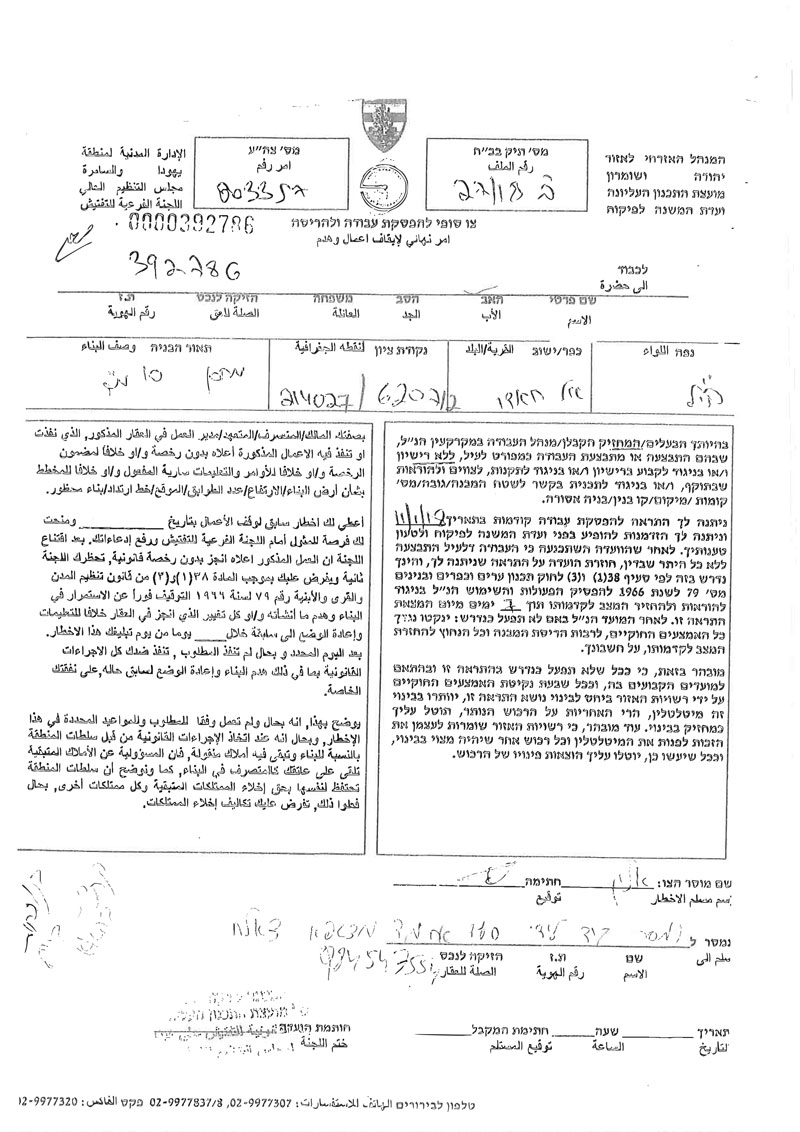 המנהל האזרחי לאזור
יהודה ושומרון
מועצת התכנון העליונה
ועדת המשנה לפיקוח
מס' תיק בב"ח
رقم الملف
ב 27/18
מס' צה"ע
امر رقم
الإدارة المدنية لمنطقة
يهودا والسامرة
مجلس التنظيم العالي
اللجنة الفرعية للتفتيش
0000392786
צו סופי להפסקת עבודה ולהריסה
امر نهائي لإيقاف اعمال وهدم
392786
לכבוד
الى حضرة
שם פרטי האב הסב משפחה הזיקה לנכס ת.ז
الاسم الأب الجد العائلة الصلة للعق رقم الهوية
נפה اللواء
כפר/ישוב القرية/البلد
נקודת ציון النقطه الجغرافية
תאור הבניה وصف البناء
מחסן
בהיותך הבעלים/המחזיק הקבלן/מנהל העבודה במקרקעין הנ"ל,
שבהם התבצעה או מתבצעת העבודה כמפורט לעיל, ללא רישיון
ו/או בניגוד לקבוע ברישיון ו/או בניגוד לתקנות, לצווים ולהוראות
שבתוקף, ו/או בניגוד לתכנית בקשר לשטח המבנה/גובה/מס'
קומות /מיקום/קו בנין/בניה אסורה.
ניתנה לך התראה להפסקת עבודה קודמת בתאריך
וניתנה לך הזדמנות להופיע בפני ועדת המשנה לפיקוח ולטעון
טענותיך. לאחר שהוועדה השתכנעה כי העבודה דלעיל התבצעה
ללא כל היתר שבדין, חוזרת הועדה על התראה שניתנה לך, והינך
נדרש בזה לפי סעיף 38(ג) (1) ו(3) לחוק תכנון ערים וכפרים ובניינים
מס' 79 לשנת 1966 להפסיק הפעולות והשימוש הנ"ל בניגוד
להוראות ולהחזיר המצב לקדמותו תוך 7 ימים מיום המצאת
התראה זו. לאחר המועד הנ"ל באם לא תפעל כנדרש: ינקטו נגדך
כל האמצעים החוקיים, לרבות הריסת המבנה וכל הנחוץ להחזרת
המצב לקדמותו, על חשבונך.
מובהר בזאת, כי ככל שלא תפעל כנדרש בהתראה זו ובהתאם
למועדים הקבועים בה, וככל שבעת נקיטת האמצעים החוקיים
על ידי רשויות האזור ביחס לבינוי נושא התראה זו, יוותרו בבינוי
זה מיטלטלין, הרי האחריות על הרכוש הנותר, תוטל עליך
כמחזיק בבינוי. עוד מובהר, כי רשויות האזור שומרות לעצמן את
הזכות לפנות את המיטלטלין וכל רכוש אחר שיהיה מצוי בבינוי,
וככל שיעשו כן, יוטלו עליך הוצאות פינויו של הרכוש.
بصفتك المالك/المتصرف/المتعهد/مدير العمل في العقار المذكور, الذي نفذت
او تنفذ فيه الاعمال المذكورة أعلاه بدون رخصة و/او خلافا لمضمون
الرخصة و/او خلافا للأوامر والتعليمات سارية المفعول و/او خلافا للمخطط
بشأن أرض البناء/الارتفاع/عدد الطوابق/الموقع/خط ارتداد/بناء محظور.
أعطي لك اخطار سابق لوقف الأعمال بتاريخ ومنحت
لك فرصة للمثول أمام اللجنة الفرعية للتفتيش ورفع إدعاءاتك. بعد اقتناع
اللجنة ان العمل المذكور اعلاه انجز بدون رخصة قانونية, تحظرك اللجنة
ثانية ويفرض عليك بموجب المادة ٣٨(١)و(٣) من قانون تنظيم المدن
والقرى والأبنية رقم ٧٩ لسنة ١٩٦٦ التوقيف فوراً عن الاستمرار في
البناء وهدم ما أنشأته و/او كل تغيير الذي انجز في العقار خلافا للتعليمات
وإعادة الوضع الى سابقة خلال يوما من يوم تبليغك هذا الاخطار.
بعد اليوم المحدد و بحال لم تنفذ المطلوب , تتخذ ضدك كل الاجراءات
القانونية بما في ذلك هدم البناء وإعادة الوضع لسابق حاله, على نفقتك
الخاصة.
يوضح بهذا, انه بحال ولم تعمل وفقا للمطلوب وللمواعيد المحددة في هذا
الإخطار, وبحال انه عند اتخاذ الإجراءات القانونية من قبل سلطات المنطقة
بالنسبة للبناء وتبقى فيه أملاك منقولة, فان المسؤولية عن الأملاك المتبقية
تلقى على عاتقك كالمتصرف في البناء, كما ونوضح أن سلطات المنطقة
تحتفظ لنفسها بحق إخلاء الممتلكات المتبقية وكل ممتلكات أخرى, بحال
فعلوا ذلك, تفرض عليك تكاليف إخلاء الممتلكات.
שם מוסר הצו: חתימה
إسم مسلم الاخطار توقيع
נמסר ל
سلم الى
שם ת.ז הזיקה לנכס
الاسم رقم الهوية الصلة للعقار
תאריך שעה חתימת המקבל חותמת הועדה
التاريخ الساعة توقيع المستلم ختم اللجنة
טלפון לבירורים الهاتف للاستفسارات: 02-9977307, 02-9977837/8 פקס الفاكس: 02-9977320